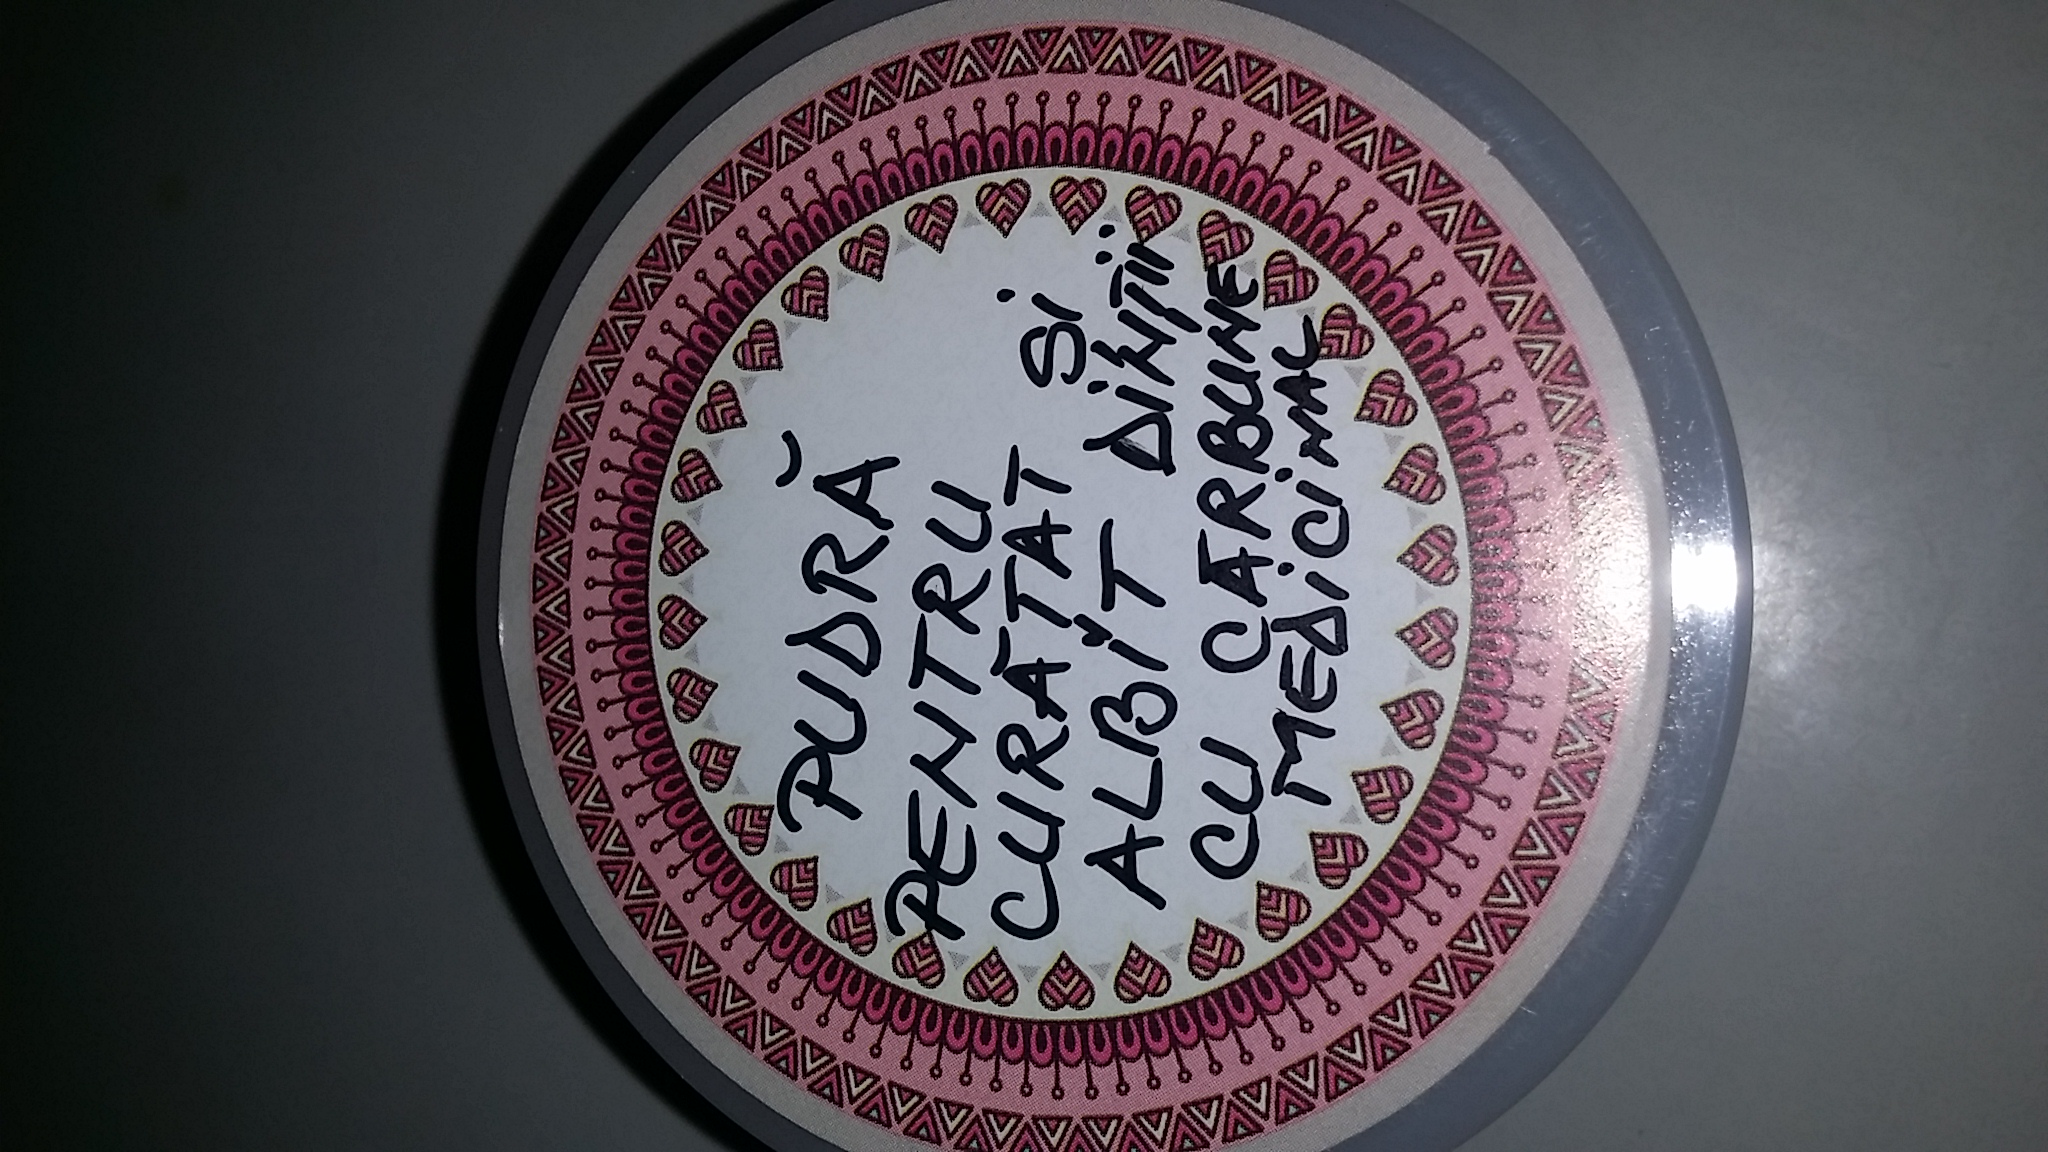 PUDRĂ
PENTRU
CURĂTAT Si
ALBIT DiNȚii
CU CĂRBUNE
MEDiCiNAL